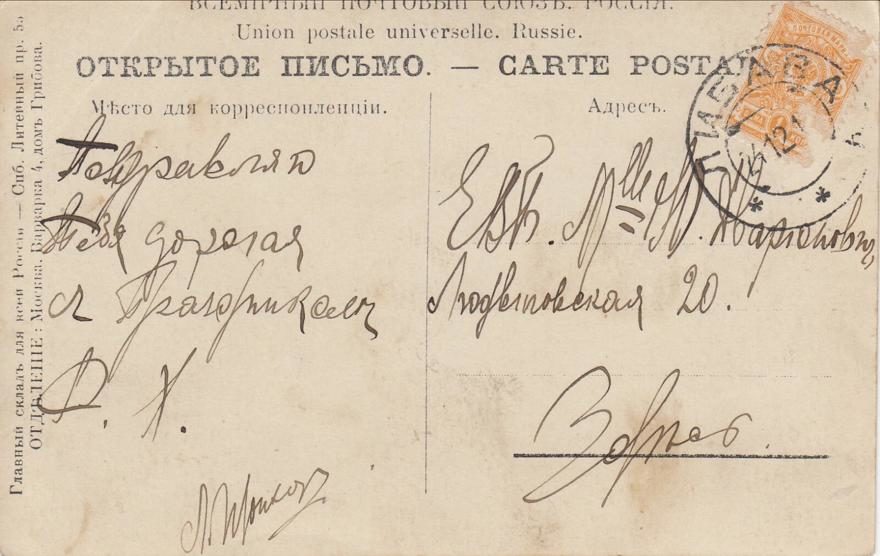 ВСЕМІРНЫЙ ПОЧТОВЫЙ СОЮЗЪ. РОССІЯ.
Union postale universelle. Russie.
ОТКРЫТОЕ ПИСЬМО. — CARTE POSTA
Мѣсто для корреспонденціи.
Адресъ.
Поздравляю
тебя дорогая
с Праздником
Р. Х.
ЕВБ. Mlle М.
20.
Здѣсь.
ЛИБАВА
24 12 1
Главный складъ для всей Россіи — Спб. Литейный пр. 55
ОТДѢЛЕНІЕ: Москва. Варварка 4, домъ Грибова.